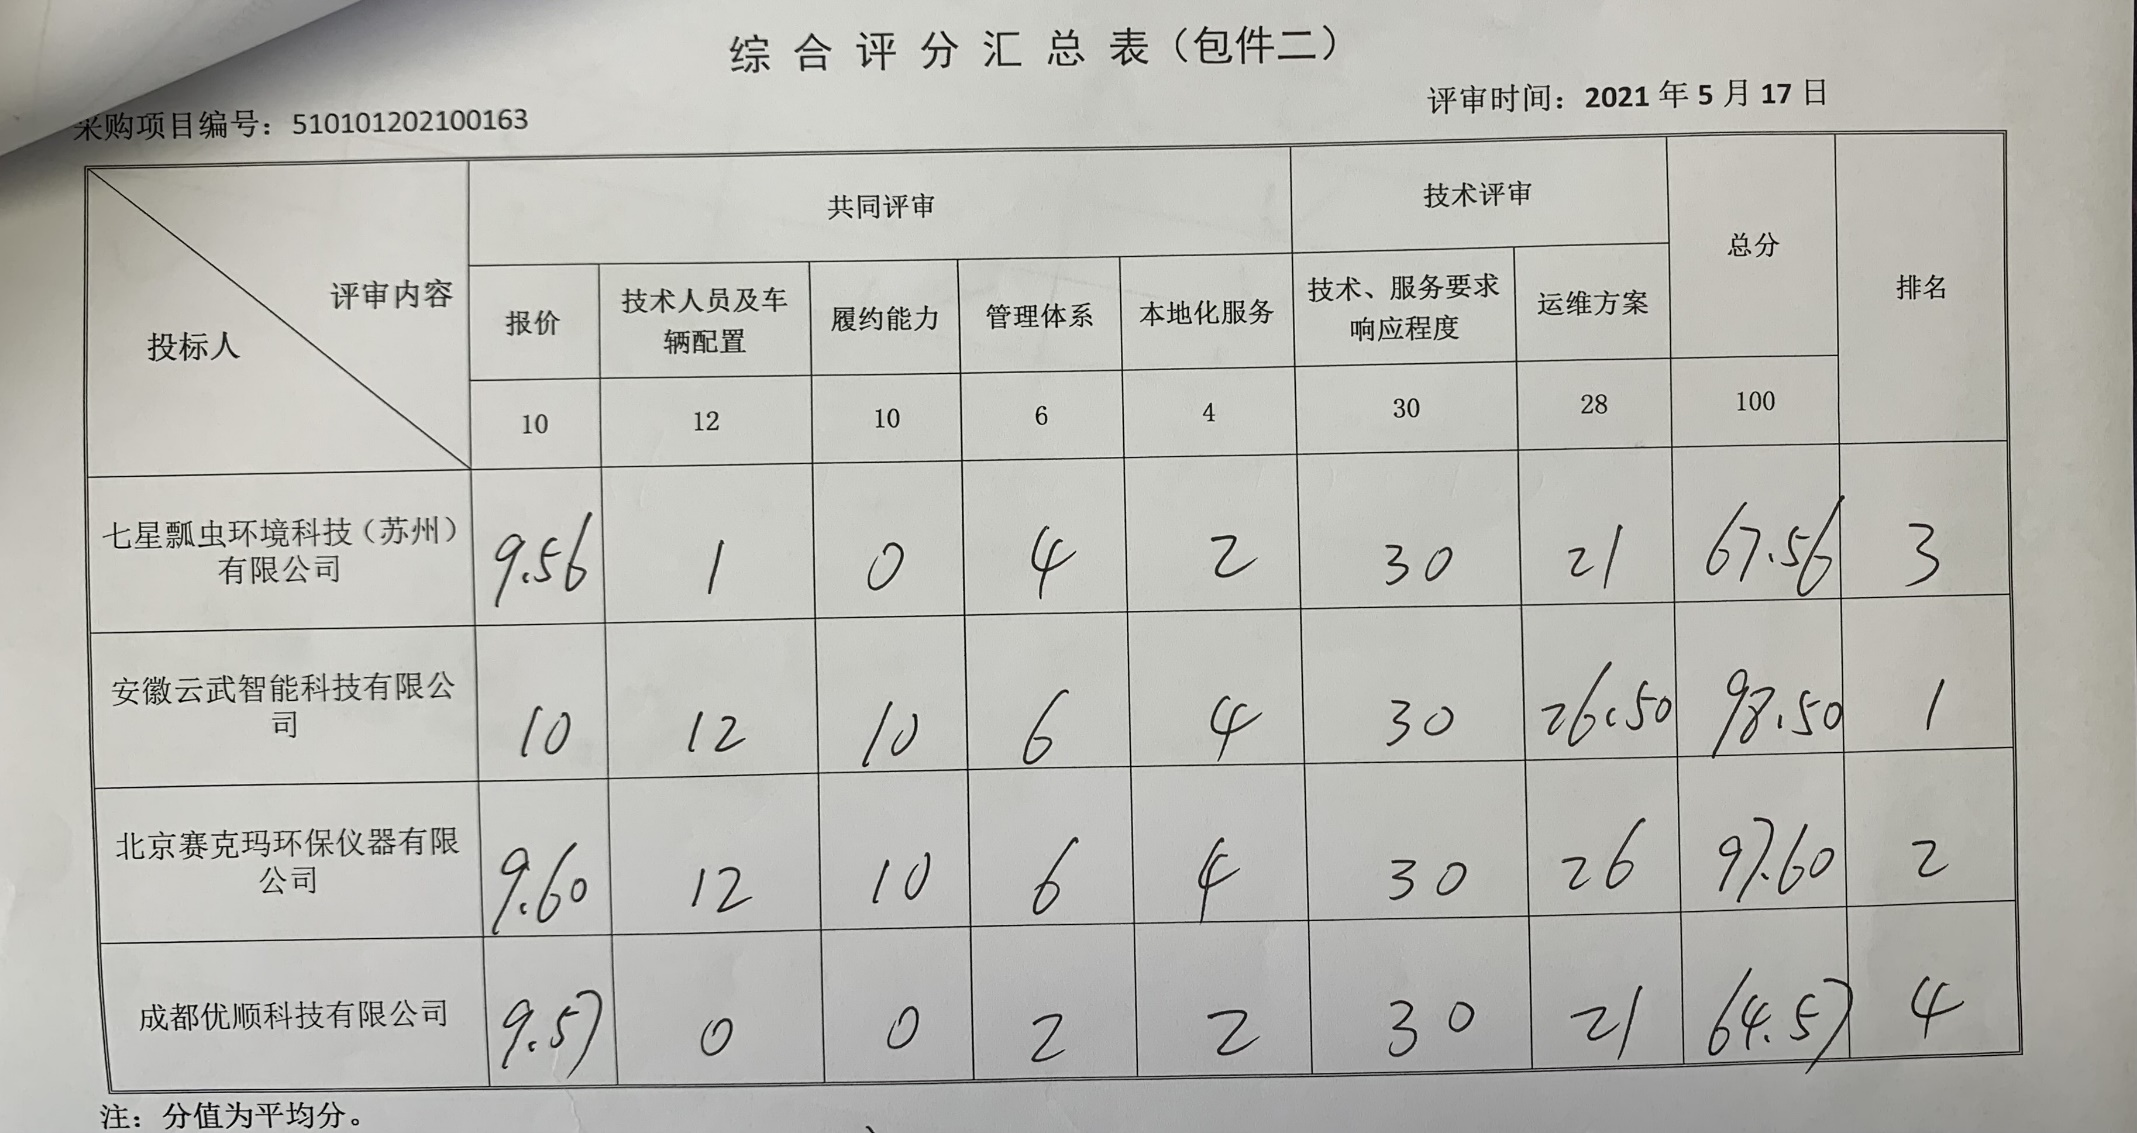 综合评分汇总表（包件二）
采购项目编号：510101202100163
评审时间：2021 年 5 月 17 日
评审内容
投标人
共同评审
技术评审
总分
排名
报价
技术人员及车
辆配置
履约能力
管理体系
本地化服务
技术、服务要求
响应程度
运维方案
10 12 10 6 4 30 28 100
七星瓢虫环境科技（苏州）
有限公司
9.56 1 0 4 2 30 21 67.56 3
安徽云武智能科技有限公
司
10 12 10 6 4 30 26.50 98.50 1
北京赛克玛环保仪器有限
公司
9.60 12 10 6 4 30 26 97.60 2
成都优顺科技有限公司
9.57 0 0 2 2 30 21 64.57 4
注：分值为平均分。